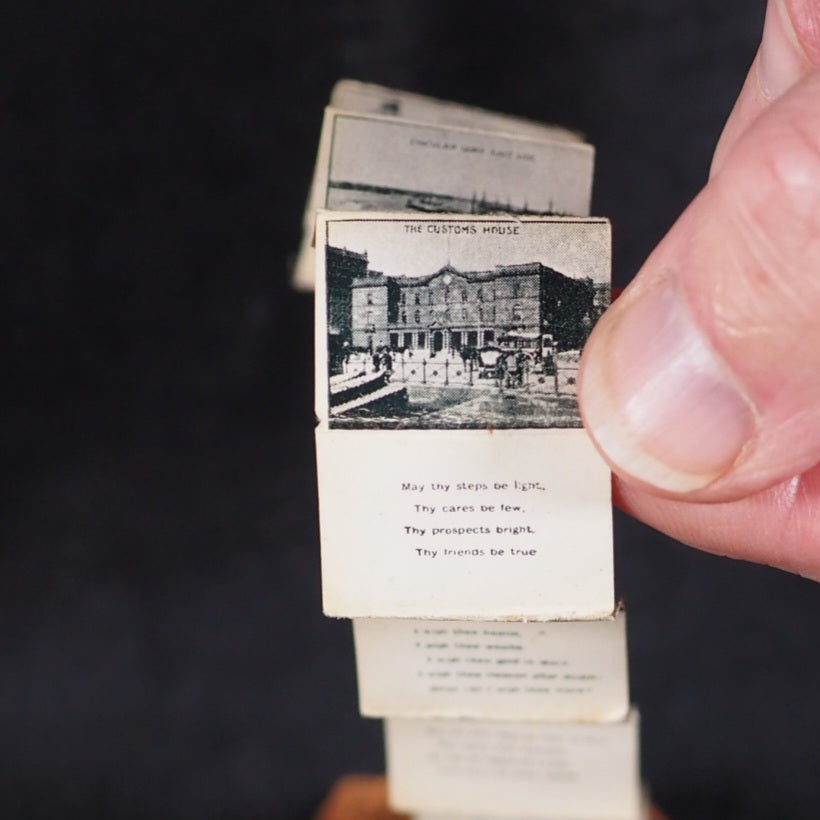 CIRCULAR QUAY EAST SIDE
THE CUSTOMS HOUSE
May thy steps be light,
Thy cares be few,
Thy prospects bright,
Thy friends be true
I wish thee health,
I wish thee wealth
I wish thee gold in store,
I wish thee heaven after death
What can I wish thee more?